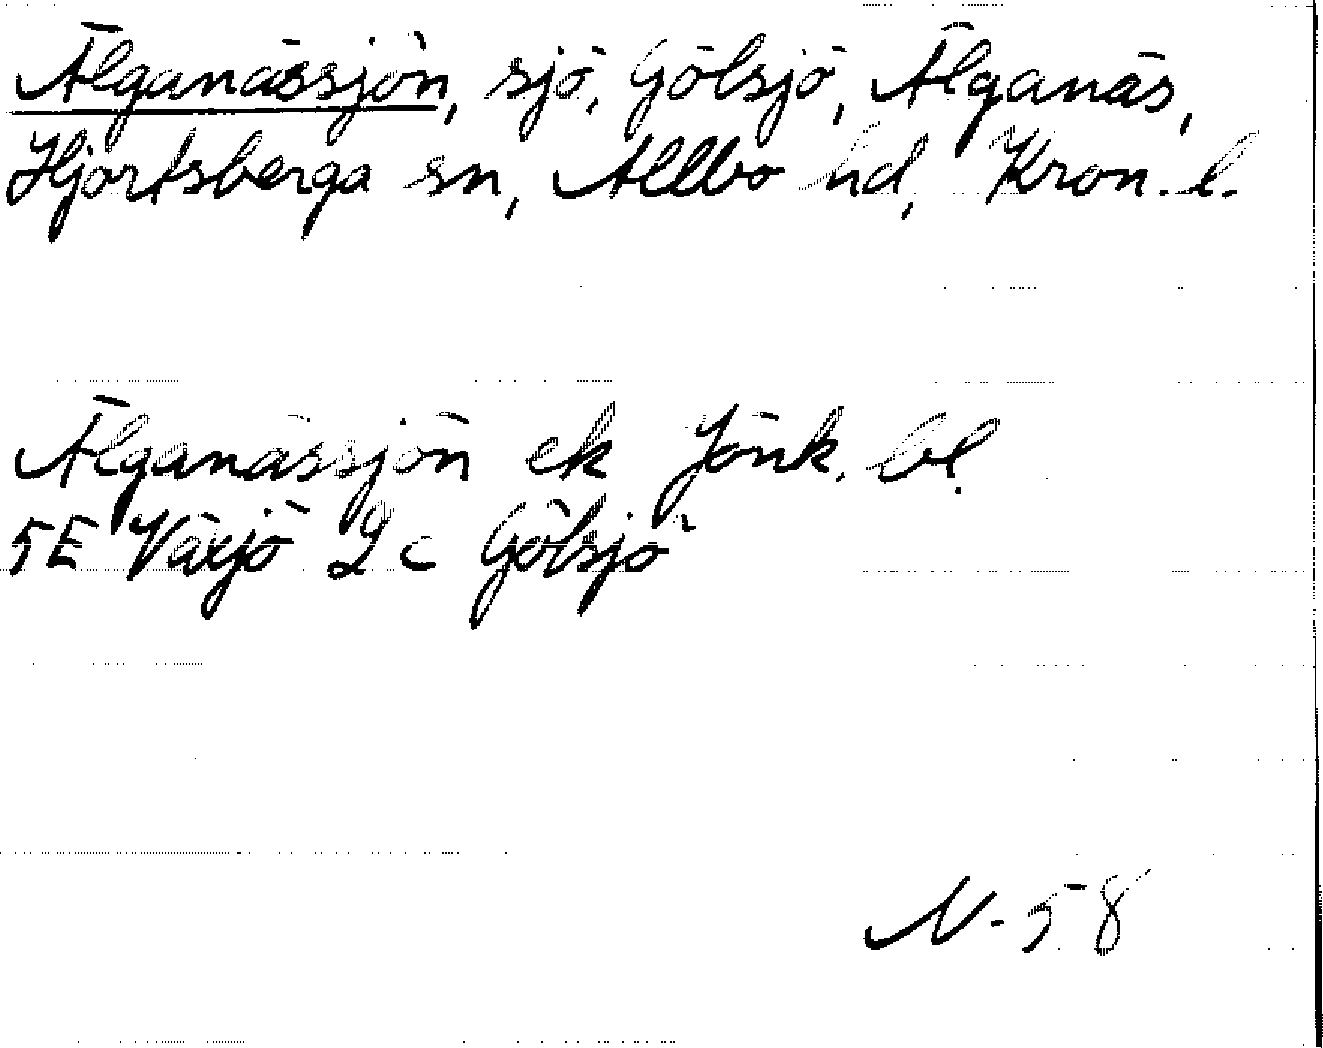 Älganässjön, sjö, Gölsjö, Älganäs,
Hjortsberga sn, Allbo hd, Kron. l.
Älganässjön ek Jönk. bl.
5E Växjö 2 c Gölsjö
N-58